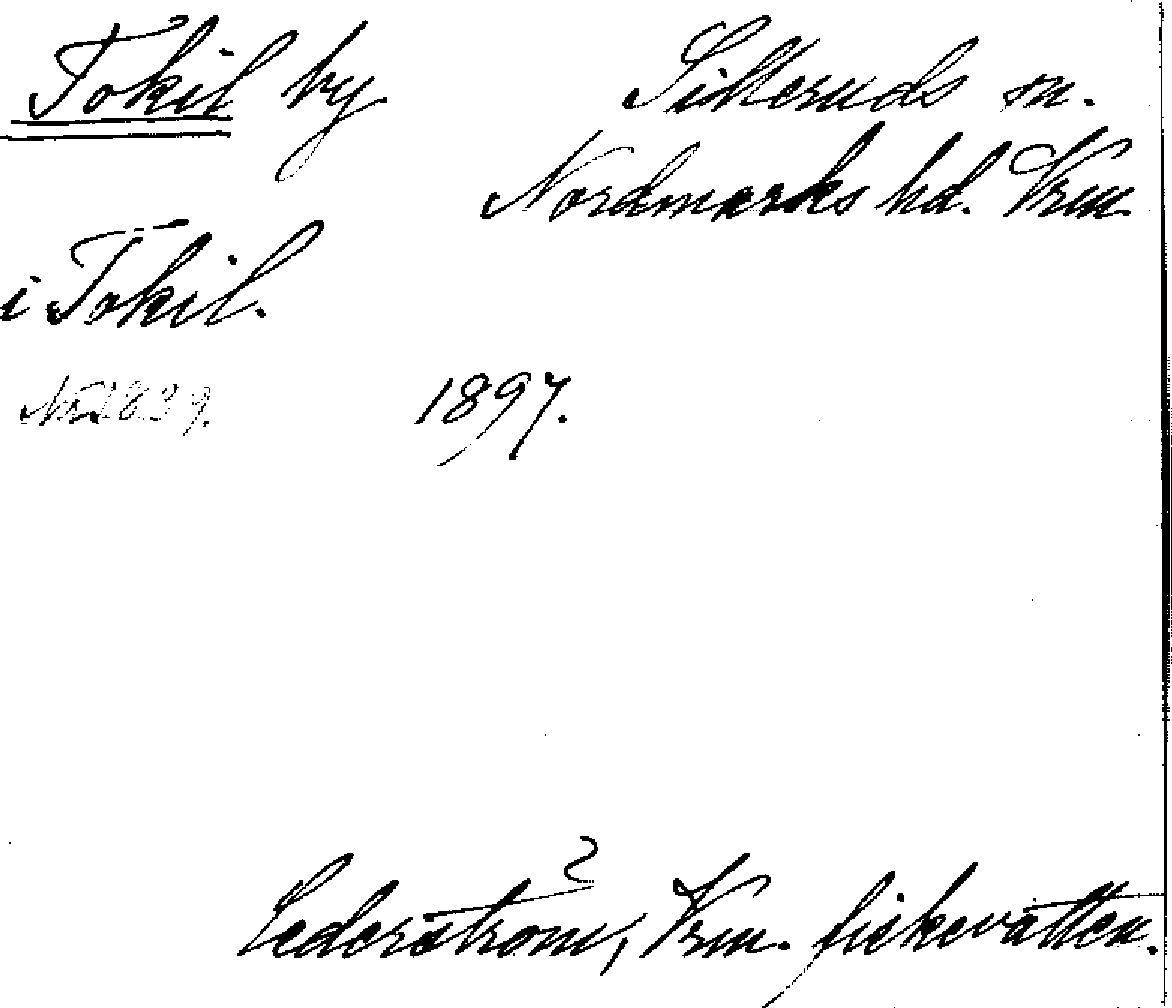 Tokil by
Silleruds sn.
Nordmarks hd. Vrm.
i Tokil.
No 2839. 1897.
Cederström, Vrm. fiskevatten.
2